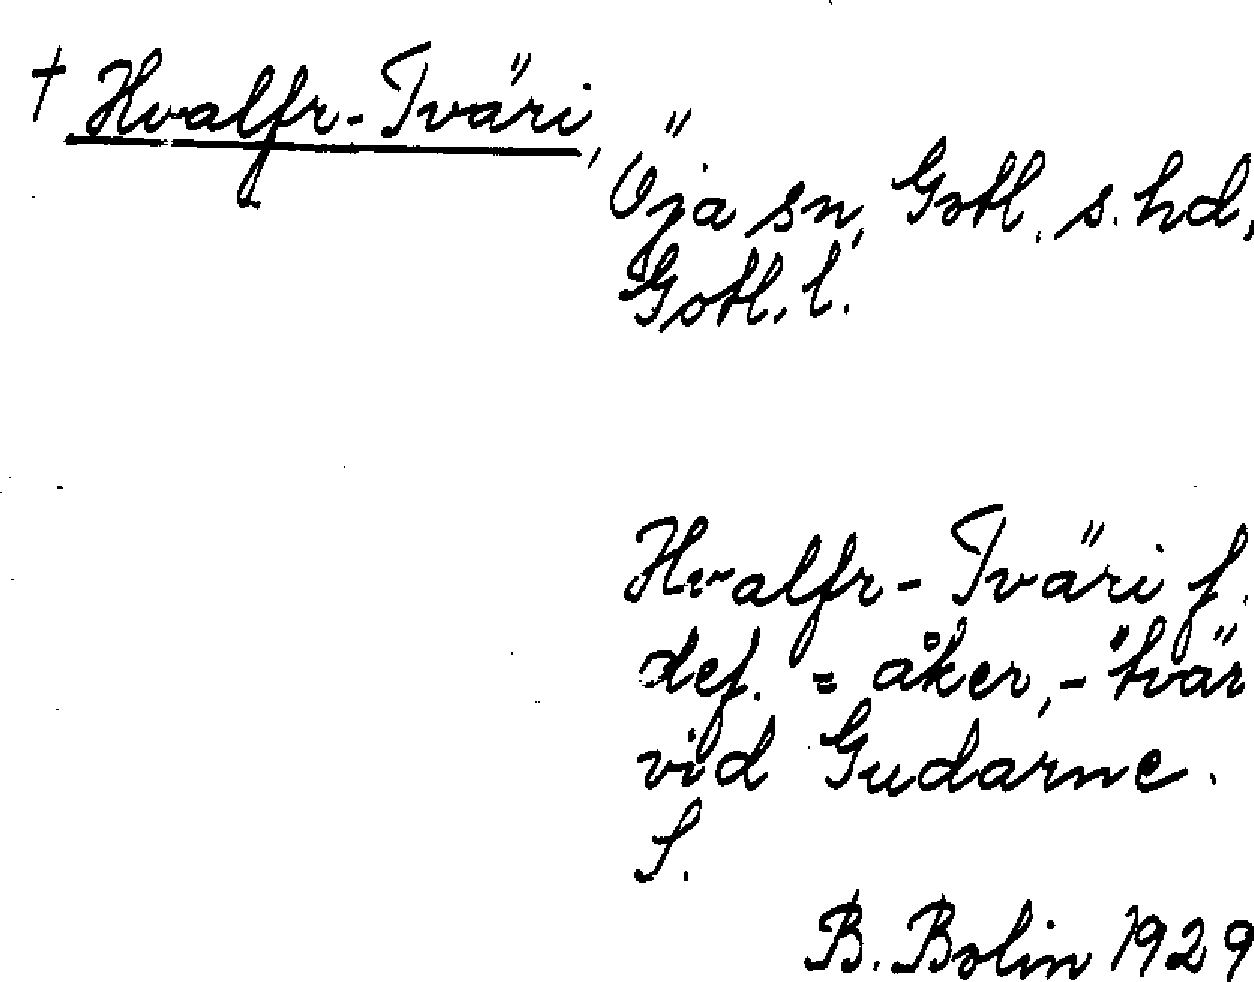 † Hvalfr-Tväri,
Öja sn, Gotl. s. hd,
Gotl. l.
Hvalfr-Tväri f.
def. = åker, - tvär
vid Gudarne.
S.
B. Bolin 1929